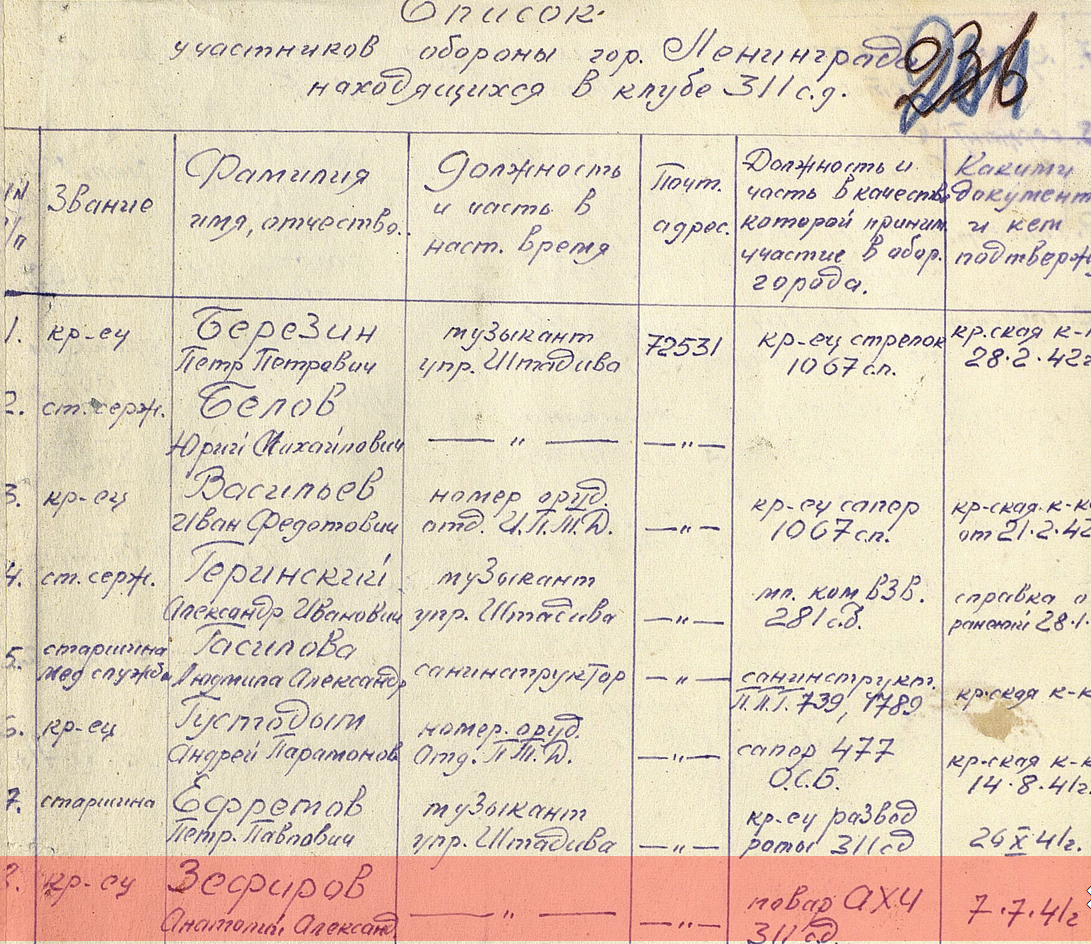 Список
участников обороны гор. Ленинграда
находящихся в клубе 311 с.д.
п/п
Звание
Фамилия
имя, отчество.
Должность
и часть в
наст. время
Почт.
адрес.
Должность и
часть в качестве
которой приним.
участие в обор.
города.
Какими
документ
и кем
подтверж
1. кр-ец Березин музыкант 72531 кр-ец стрелок кр.ская к-
Петр Петрович упр. Штадива 1067 сп. 28.2.42г
2. ст. серж. Белов
Юрий Михайлович — " — — " —
3. кр-ец Васильев номер оруд. кр-ец сапер кр-ская к-к
Иван Федотович отд. И.П.Т.Д. — " — 1067 сп. от 21.2.42
4. ст. серж. Геринский музыкант мл. ком ВЗВ. справка о
Александр Иванович упр. Штадива — " — 281 с.д. ранении 28.1.
5. старшина Гасилова санинструктор — " — санинструкт. кр-ская к-к
мед службы Людмила Александр П.П.Г. 739, 1789
6. кр-ец Андрей Парамонов номер оруд. сапер 477 кр-ская к-к
Отд. П.Т.Д. — " — О.С.Б. 14.8.41г.
7. старшина Ефремов музыкант кр-ец развед
Петр. Павлович упр. Штадива — " — роты 311 сд 26 X 41г.
8. кр-ец Зефиров — " — повар АХЧ 7.7.41г
Анатолий Александ — " — 311 сд.